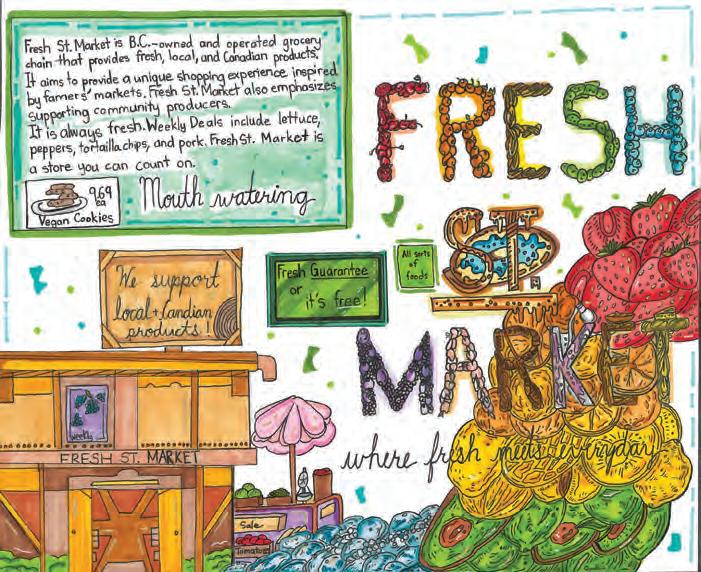 Fresh St. Market is B.C.-owned and operated grocery
chain that provides fresh, local, and Canadian products.
It aims to provide a unique shopping experience inspired
by famers' markets. Fresh St. Market also emphasizes
supporting community producers.
It is always fresh. Weekly Deals include lettuce,
peppers, tortailla chips, and pork. Fresh St. Market is
a store you can count on.
9.69
ea
Vegan Cookies
Mouth watering
FRESH
ST.
MARKET
where fresh meets everyday
We support
local + Candian
products!
Fresh Guarantee
or
it's free!
All sorts
of
foods
weekly
FRESH ST. MARKET
Sale
Tomatoes